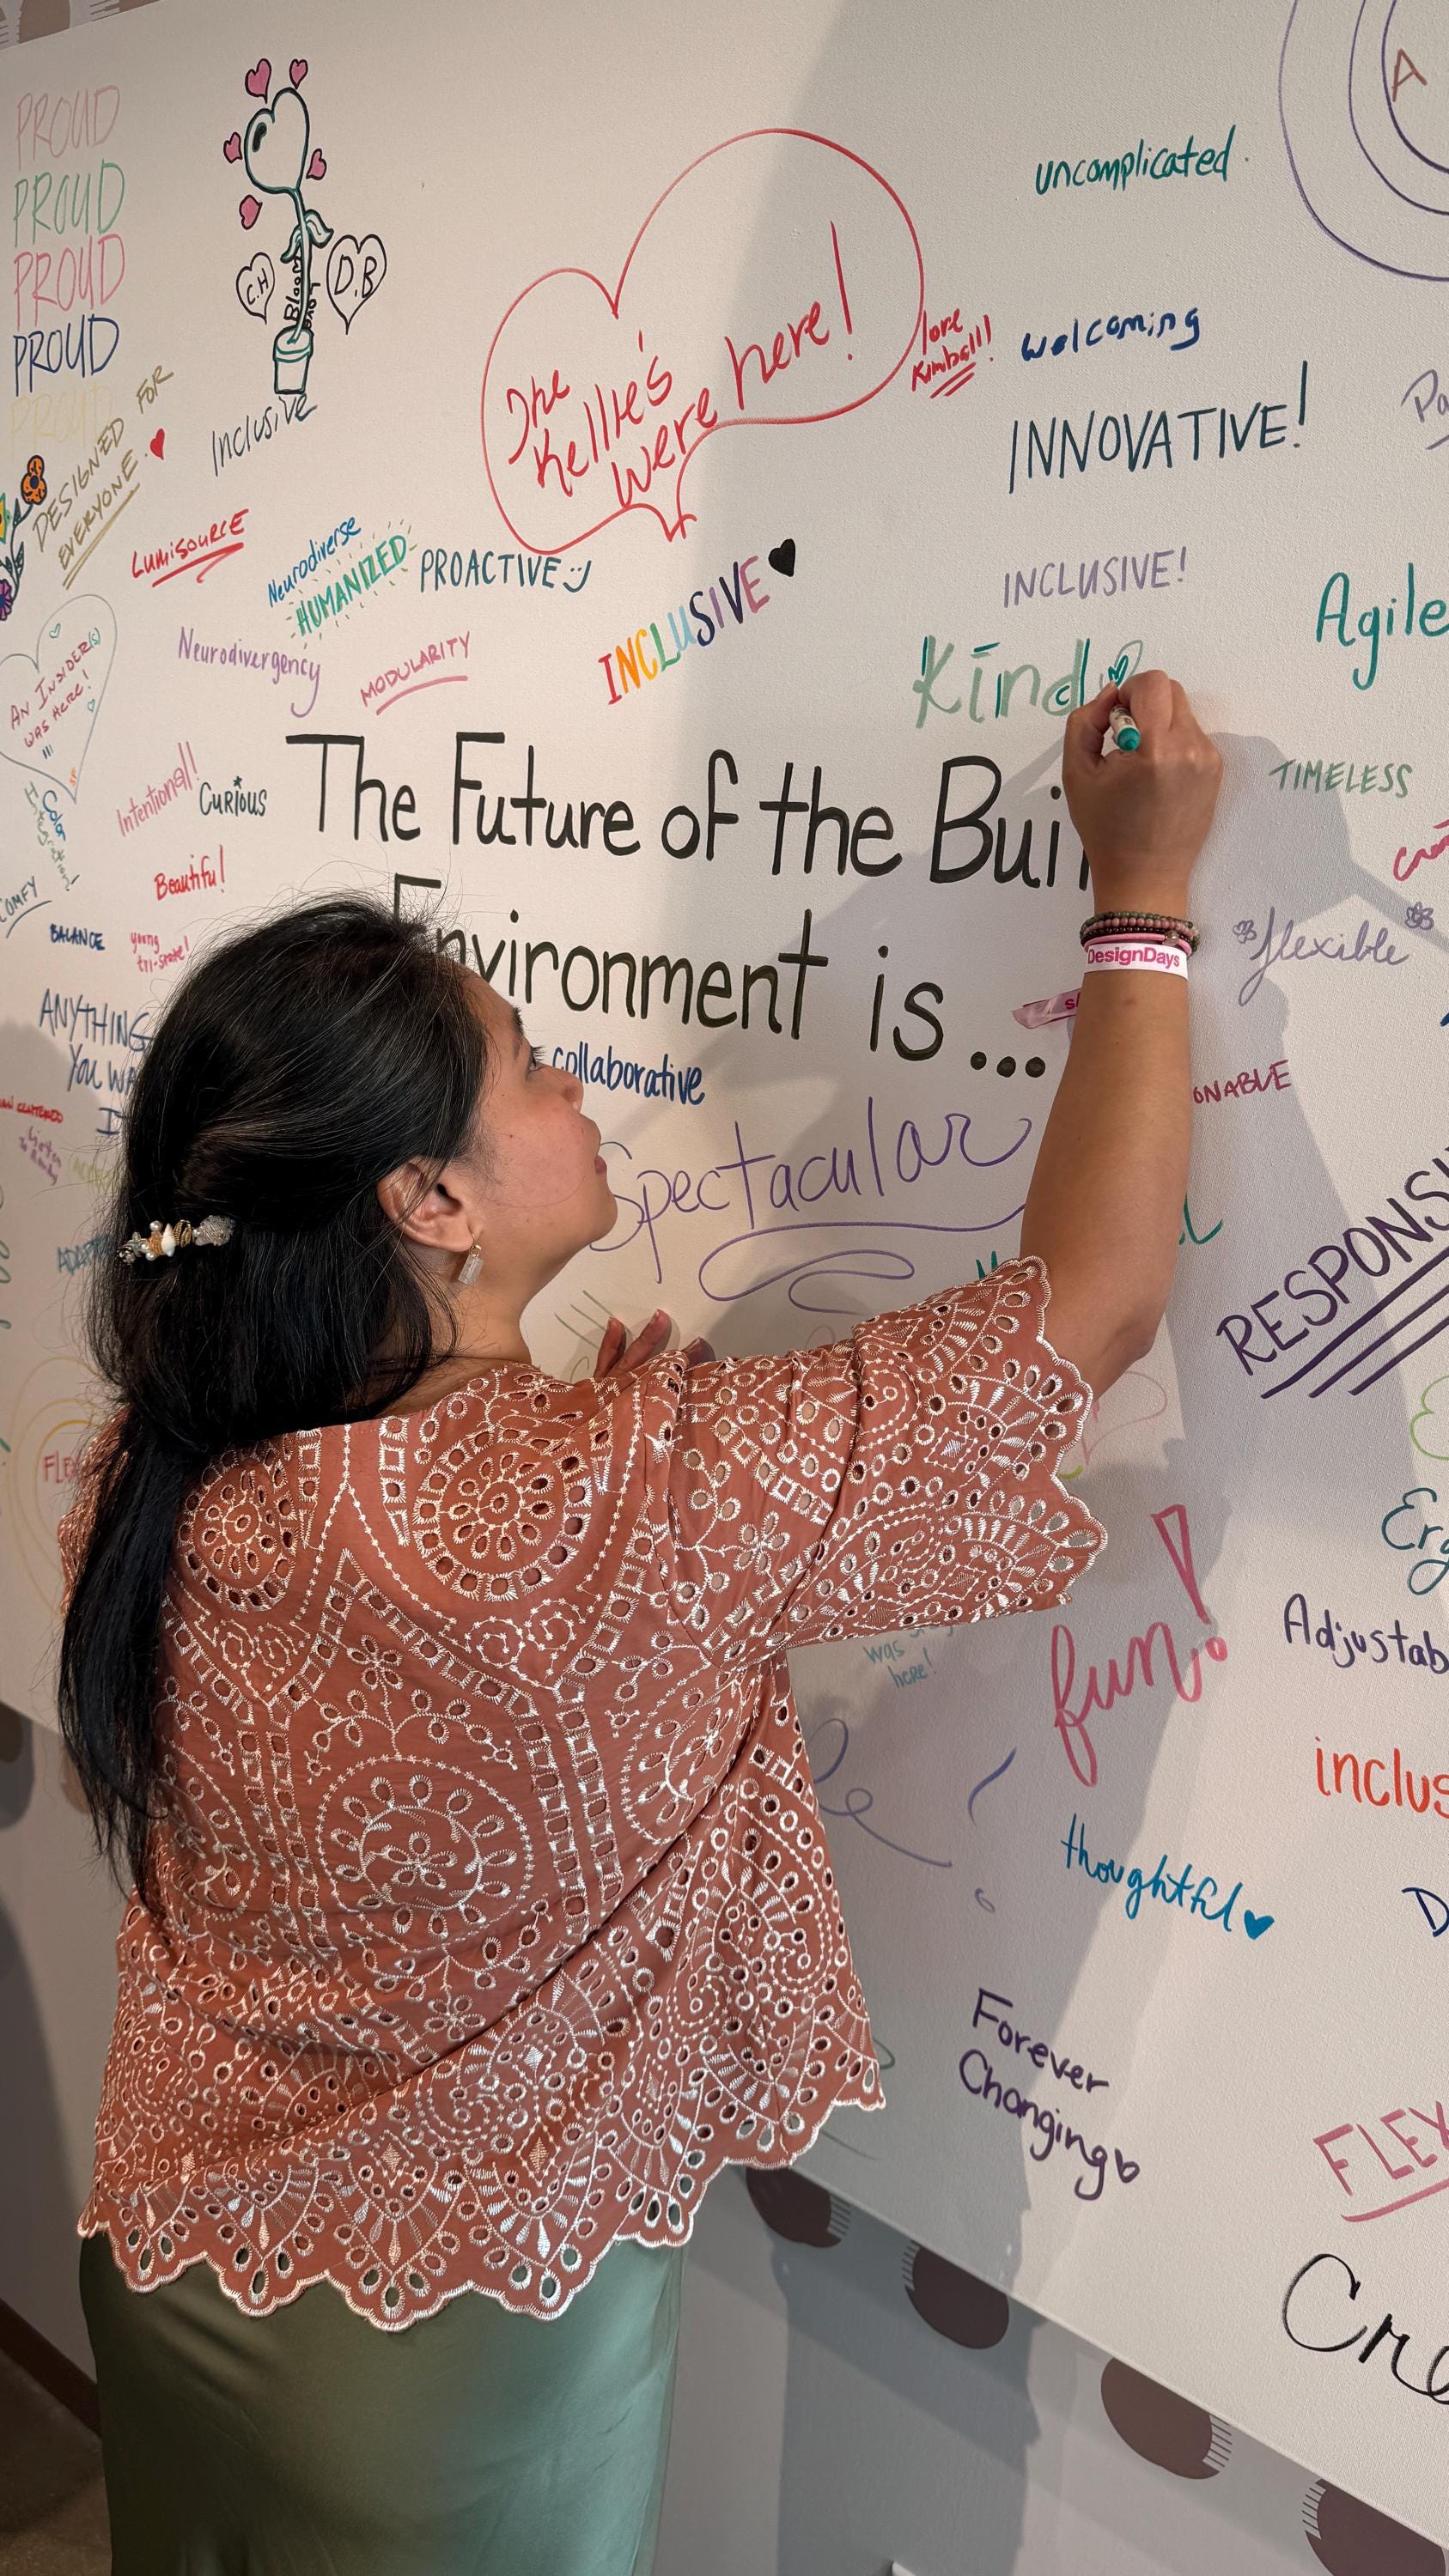 PROUD
PROUD
PROUD
PROUD
PROUD
DESIGNED FOR
EVERYONE.
C.H
D.B
Bloom
Inclusive
The
Kellie's
were here!
love
Kimball!
uncomplicated.
welcoming
INNOVATIVE!
INCLUSIVE!
A
LUMISOURCE
Neurodiverse
HUMANIZED
PROACTIVE
INCLUSIVE
Neurodivergency
MODULARITY
Kind
Agile
AN INSIDER(S)
WAS HERE!
Intentional!
Curious
Color
The Future of the Bui
Environment is...
TIMELESS
Beautiful!
COMFY
BALANCE
young
tri-state!
flexible
DesignDays
ANYTHING
YOU WA
I
collaborative
Spectacular
ONABLE
ADAP
RESPONSI
FLE
was
here!
fun!
Erg
Adjustab
inclus
thoughtful
D
Forever
Changing
FLEX
Cre